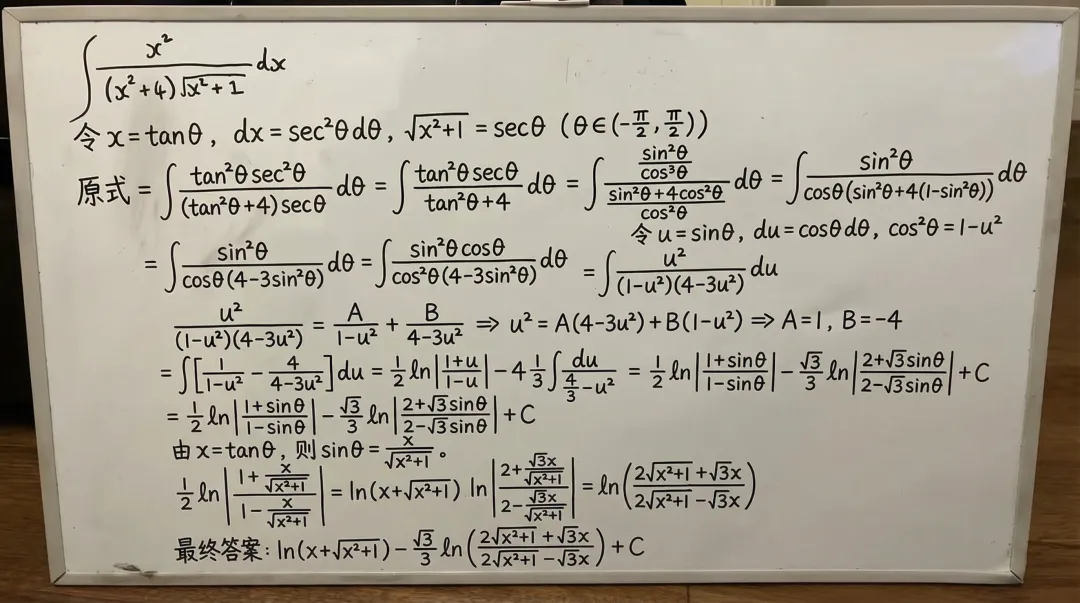 ∫ x²/((x²+4)√(x²+1)) dx
令 x = tanθ, dx = sec²θ dθ, √(x²+1) = secθ (θ∈(-π/2, π/2))
原式 = ∫ tan²θ sec²θ/((tan²θ+4) secθ) dθ = ∫ tan²θ secθ/(tan²θ+4) dθ = ∫ (sin²θ/cos³θ)/((sin²θ+4cos²θ)/cos²θ) dθ = ∫ sin²θ/(cosθ(sin²θ+4(1-sin²θ))) dθ
令 u = sinθ, du = cosθ dθ, cos²θ = 1-u²
= ∫ sin²θ/(cosθ(4-3sin²θ)) dθ = ∫ sin²θ cosθ/(cos²θ(4-3sin²θ)) dθ = ∫ u²/((1-u²)(4-3u²)) du
u²/((1-u²)(4-3u²)) = A/(1-u²) + B/(4-3u²) ⇒ u² = A(4-3u²)+B(1-u²) ⇒ A=1, B=-4
= ∫[1/(1-u²) - 4/(4-3u²)]du = 1/2 ln|(1+u)/(1-u)| - 4 1/3 ∫ du/(4/3-u²) = 1/2 ln|(1+sinθ)/(1-sinθ)| - √3/3 ln|(2+√3sinθ)/(2-√3sinθ)| + C
= 1/2 ln|(1+sinθ)/(1-sinθ)| - √3/3 ln|(2+√3sinθ)/(2-√3sinθ)| + C
由 x=tanθ, 则 sinθ = x/√(x²+1)。
1/2 ln|(1+x/√(x²+1))/(1-x/√(x²+1))| = ln(x+√(x²+1)) ln|(2+√3x/√(x²+1))/(2-√3x/√(x²+1))| = ln((2√(x²+1)+√3x)/(2√(x²+1)-√3x))
最终答案: ln(x+√(x²+1)) - √3/3 ln((2√(x²+1)+√3x)/(2√(x²+1)-√3x)) + C